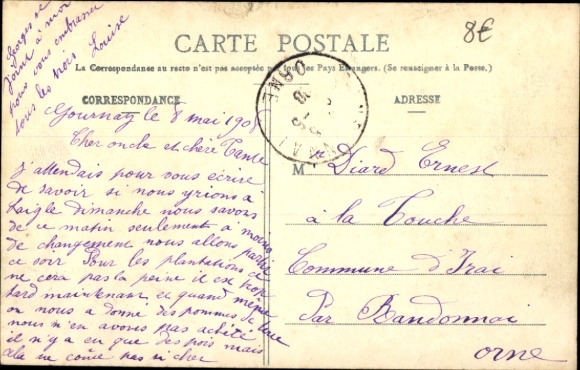 Georges se
joint à moi
pour vous embrasser
tous les trois Louise
8€
CARTE POSTALE
La Correspondance au recto n'est pas acceptée par tous les Pays Etrangers. (Se renseigner à la Poste.)
CORRESPONDANCE
ADRESSE
ORNE
Gournay le 8 mai 190
Cher oncle et chère Tante
J'attendais pour vous écrire
de savoir si nous yrions à
Laigle dimanche nous savons
de ce matin seulement à moins
de changement nous allons partir
ce soir Pour les plantations
ne cera pas la peine il est trop
tard maintenant et quand même
on nous a donné des pommes de terre
nous n'en avons pas acheté
il n'y a eu que des pois mais
cela ne coûte pas si cher
M Diard Ernest
à la Touche
Commune d'Irai
Par Bandonnai
orne